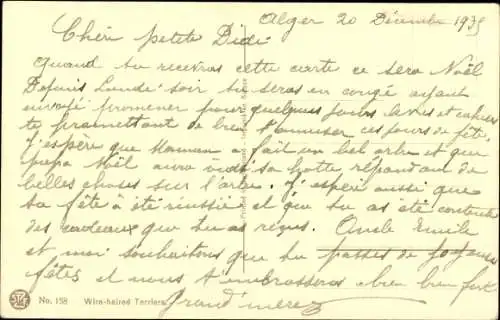 Alger 20 Décembre 1935
Chère petite Didi
Quand tu recevras cette carte ce sera Noël
Depuis Lundi soir tu seras en congé ayant
envoyé promener pour quelques jours livres et cahiers
te promettant de bien t'amuser ces jours de fête,
J'espère que Maman a fait un bel arbre et que
papa Noël aura vidé sa hotte, répandant de
belles choses sur l'arbre. J'espère aussi que
sa fête a été réussie et que tu as été contente
des cadeaux que tu as reçus. Oncle Emile
et moi souhaitons que tu passes de joyeuses
fêtes et nous t'embrassons bien bien fort
Grand'mère
No. 158 Wire-haired Terriers